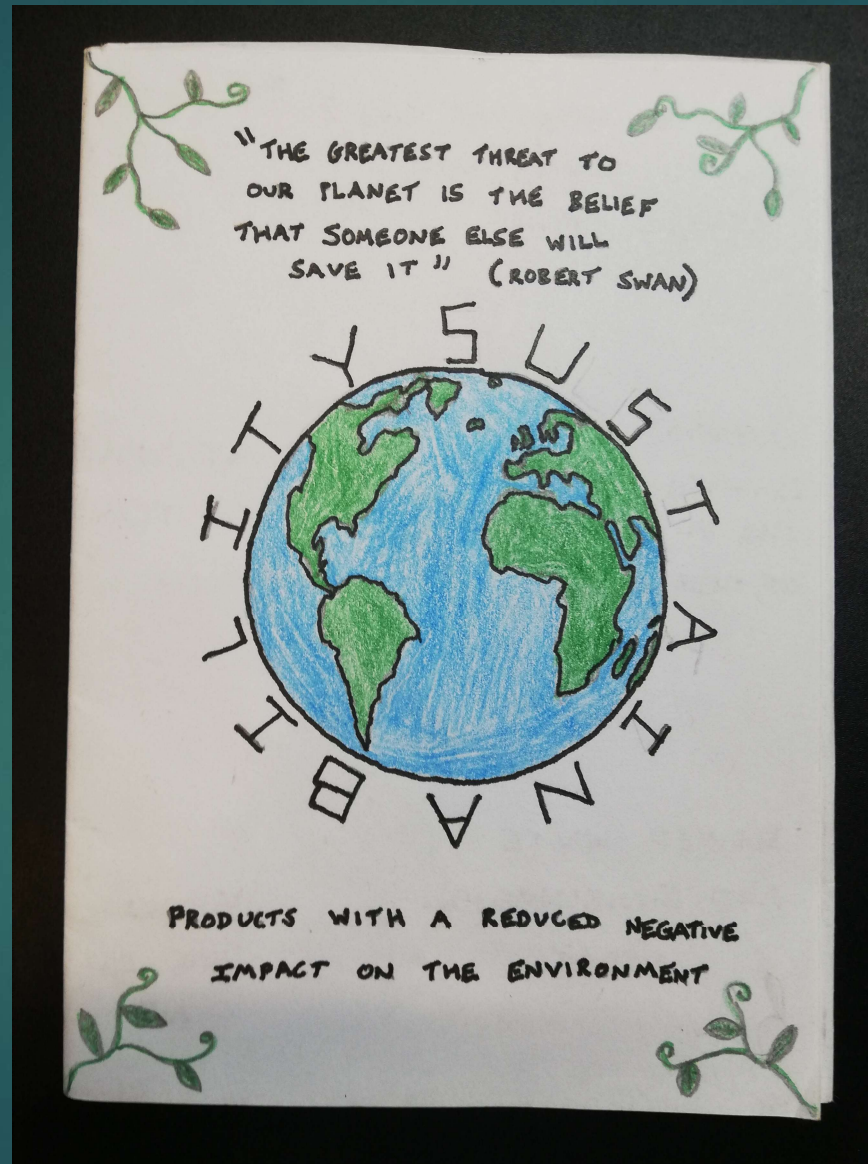 "THE GREATEST THREAT TO
OUR PLANET IS THE BELIEF
THAT SOMEONE ELSE WILL
SAVE IT" (ROBERT SWAN)
SUSTAINABILITY
PRODUCTS WITH A REDUCED NEGATIVE
IMPACT ON THE ENVIRONMENT